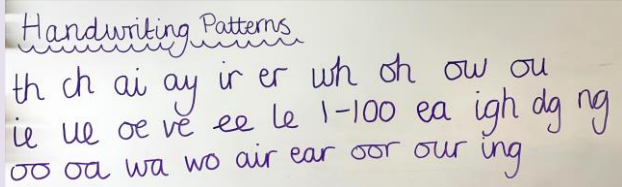 Handwriting Patterns
th ch ai ay ir er wh oh ow ou
ie ue oe ve ee le 1-100 ea igh dg ng
oo oa wa wo air ear oor our ing